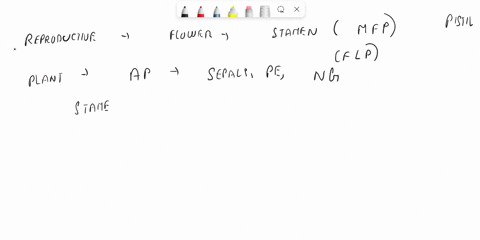 REPRODUCTIVE → FLOWER → STAMEN (MFP) PISTIL
(FLP)
PLANT → AP → SEPALS, PE, NG
STAME